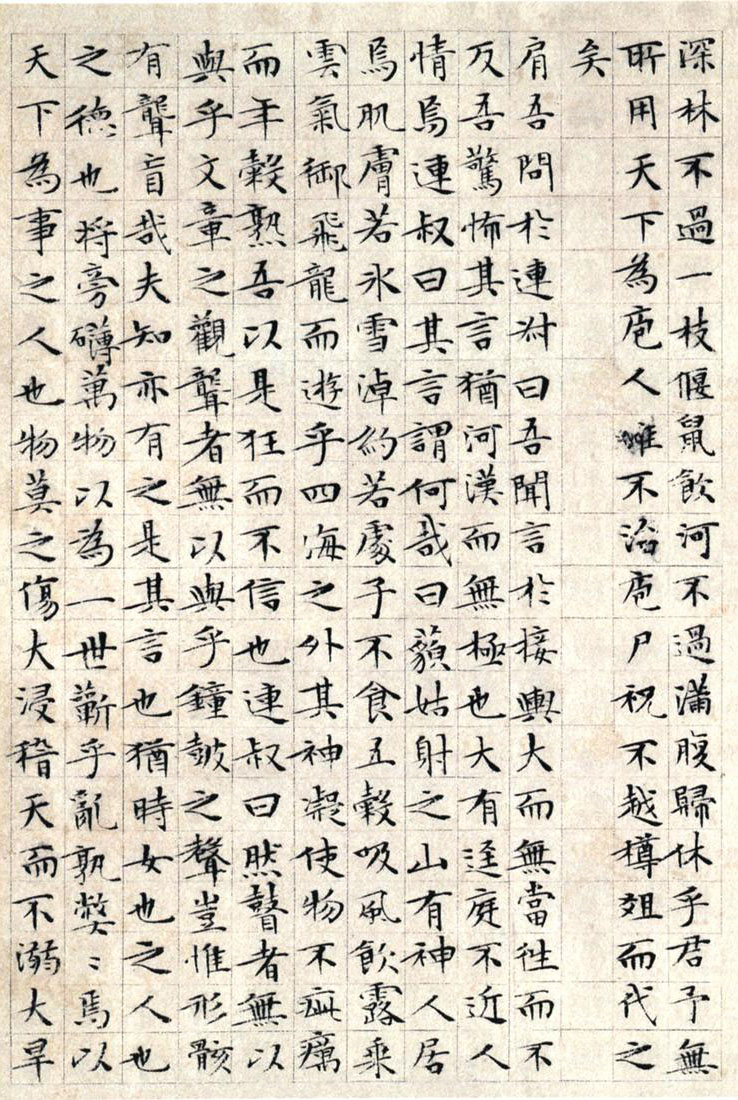 深林不過一枝偃鼠飲河不過滿腹歸休乎君予無
所用天下為庖人雖不治庖尸祝不越樽俎而代之
矣
肩吾問於連叔曰吾聞言於接輿大而無當往而不
反吾驚怖其言猶河漢而無極也大有逕庭不近人
情焉連叔曰其言謂何哉曰藐姑射之山有神人居
焉肌膚若氷雪淖約若處子不食五穀吸風飲露乘
雲氣御飛龍而遊乎四海之外其神凝使物不疵癘
而年穀熟吾以是狂而不信也連叔曰然瞽者無以
與乎文章之觀聾者無以與乎鐘皷之聲豈惟形骸
有聾盲哉夫知亦有之是其言也猶時女也之人也
之德也將旁礴萬物以為一世蘄乎亂孰弊〻焉以
天下為事之人也物莫之傷大浸稽天而不溺大旱